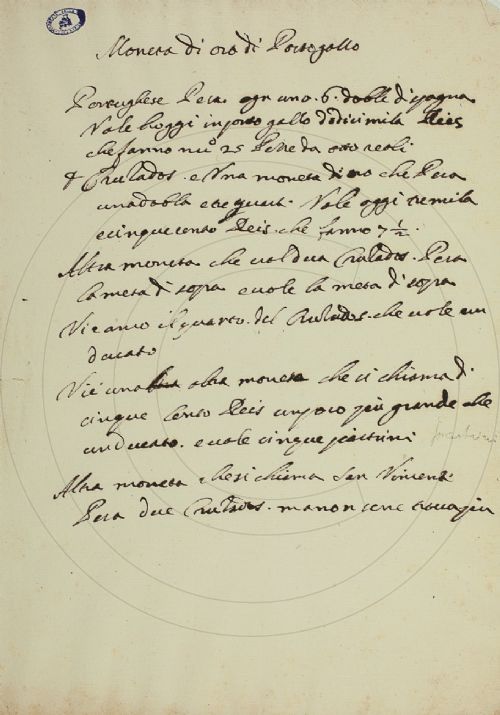 Moneta di oro di Portogallo
Portughese Pesa ogn uno 6. doble di spagna
Vale hoggi in porto gallo dodici mila Reis
che fanno nu.º 25 Pezze da otto reali
4 Crusados. e Una moneta di oro che Pesa
una dobla e tre quarti. Vale oggi tre mila
e cinque cento Reis. che fanno 7 1/2.
Altra moneta che val dua Crusados. Pesa
la meta di sopra e vole la meta di sopra
Vi e anco il quarto. del Crusados. che vole un
ducato
Vi è una altra moneta che si chiama di
cinque Cento Reis un poco più grande che
un ducato. e vole cinque piastrini
Altra moneta che si chiama San Vincenti
Pesa due Crusados. ma non se ne trova più